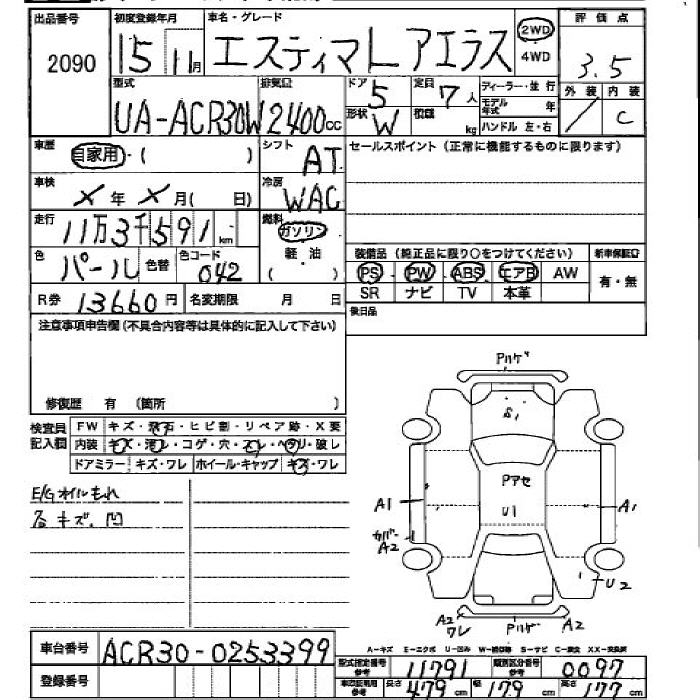 出品番号 初度登録年月 車名・グレード 評価点
2090 15 11月 エスティマL アエラス 2WD 4WD 3.5
型式 排気量 ドア 定員 ディーラー・並行 外装 内装
UA-ACR30W 2400cc 5 7人 モデル年式 年 / C
形状 W 積載 kg ハンドル 左・右
車歴 自家用・( ) シフト AT セールスポイント (正常に機能するものに限ります)
車検 X年X月( 日) 冷房 WAC
走行 11万3千591km 燃料 ガソリン
色 パール 色替 色コード 042 軽・油 ( )
装備品 (純正品に限り○をつけてください) 新車保証書
PS PW ABS エアB AW 有・無
SR ナビ TV 本革
R券 13660円 名変期限 月 日
後日品
注意事項申告欄 (不具合内容等は具体的に記入して下さい)
修復歴 有 (箇所 )
検査員記入欄 FW キズ・飛石・ヒビ割・リペア跡・X要
内装 キズ・汚レ・コゲ・穴・スレ・ヘタリ・破レ
ドアミラー キズ・ワレ ホイール・キャップ キズ・ワレ
E/Gオイルもれ
各キズ、凹
Pハゲ
S1
Pアセ
U1
A1 A1
カバー A2
U2
A2 ワレ Pハゲ A2
A-キズ E-エクボ U-凹み W-補修跡 S-サビ C-腐食 XX-交換済
車台番号 ACR30-0253399
型式指定番号 参考 11791 類別区分番号 参考 0097
登録番号
車両証明用 参考 長さ 479cm 幅 179cm 高さ 177cm